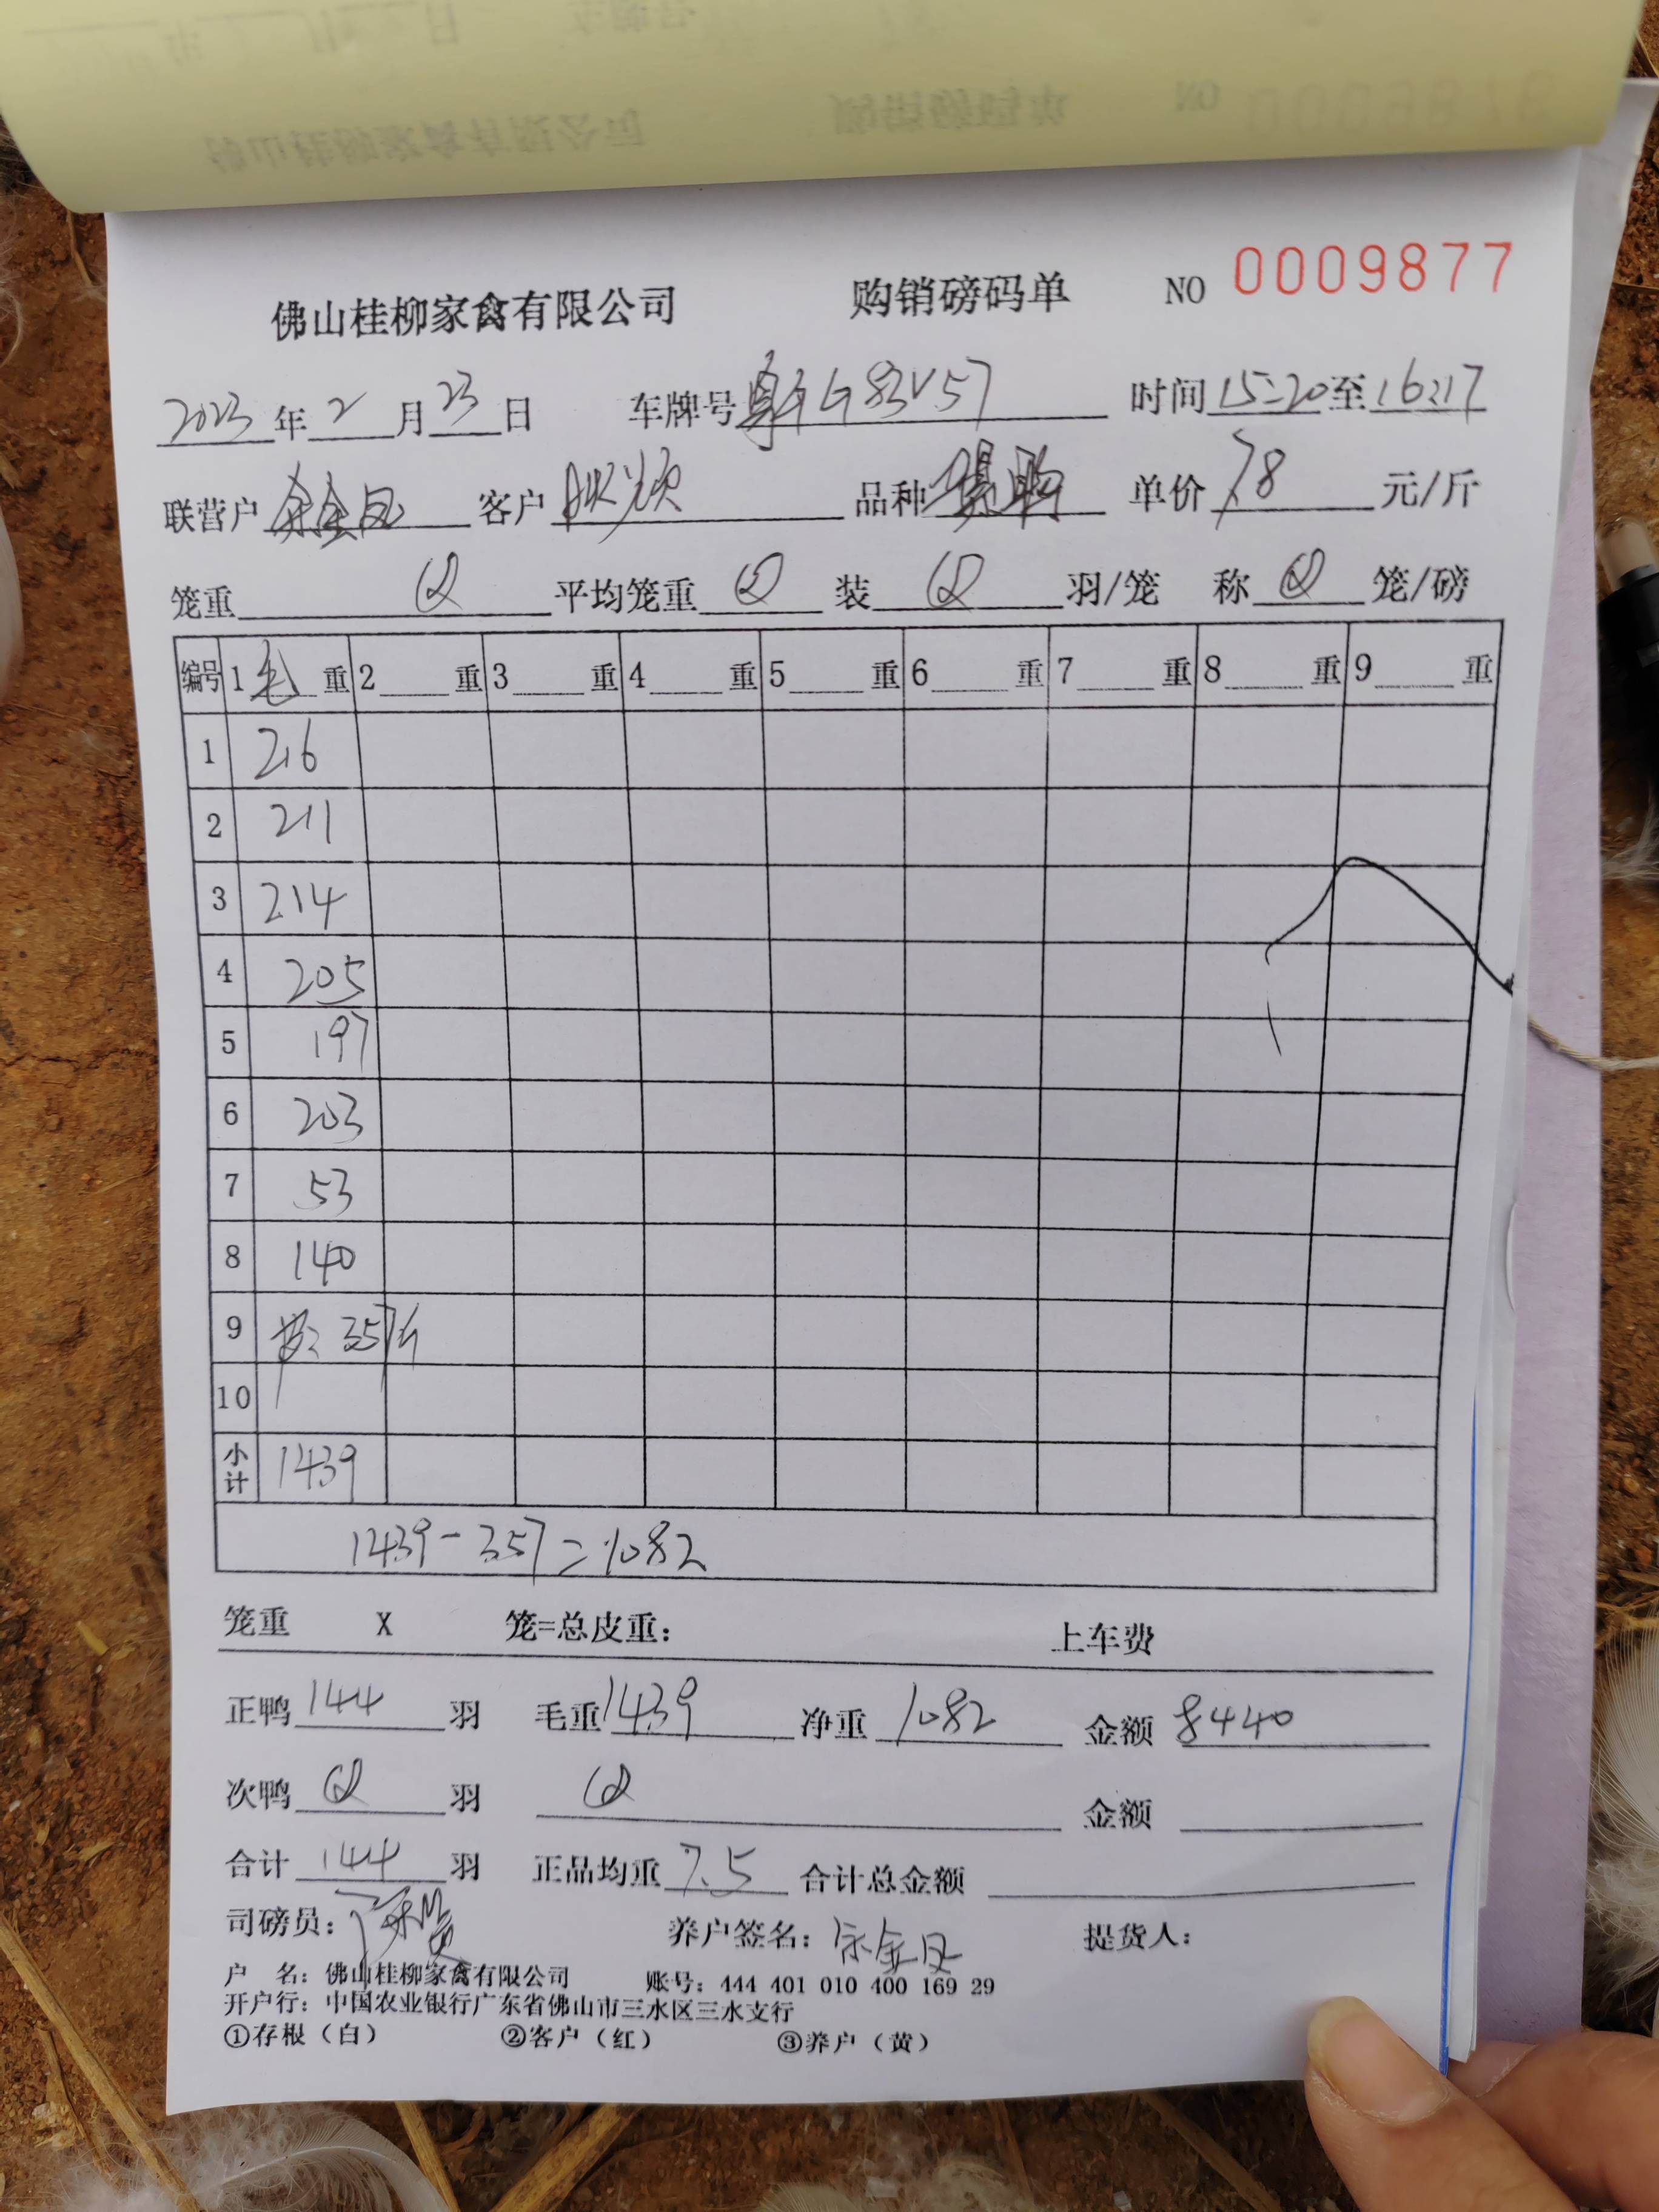 佛山桂柳家禽有限公司 购销磅码单 NO 0009877
2023年2月23日 车牌号 时间15:20至16:17
联营户 客户 品种 单价7.8元/斤
笼重 平均笼重 装 羽/笼 称 笼/磅
编号 1毛重 2 重 3 重 4 重 5 重 6 重 7 重 8 重 9 重
1 216
2 211
3 214
4 205
5 197
6 203
7 53
8 140
9 357斤
10
小计 1439
1439-357=1082
笼重 X 笼=总皮重: 上车费
正鸭144羽 毛重1439 净重1082 金额8440
次鸭 羽 金额
合计144羽 正品均重7.5 合计总金额
司磅员: 养户签名: 提货人:
户 名: 佛山桂柳家禽有限公司 账号: 444 401 010 400 169 29
开户行: 中国农业银行广东省佛山市三水区三水支行
①存根(白) ②客户(红) ③养户(黄)